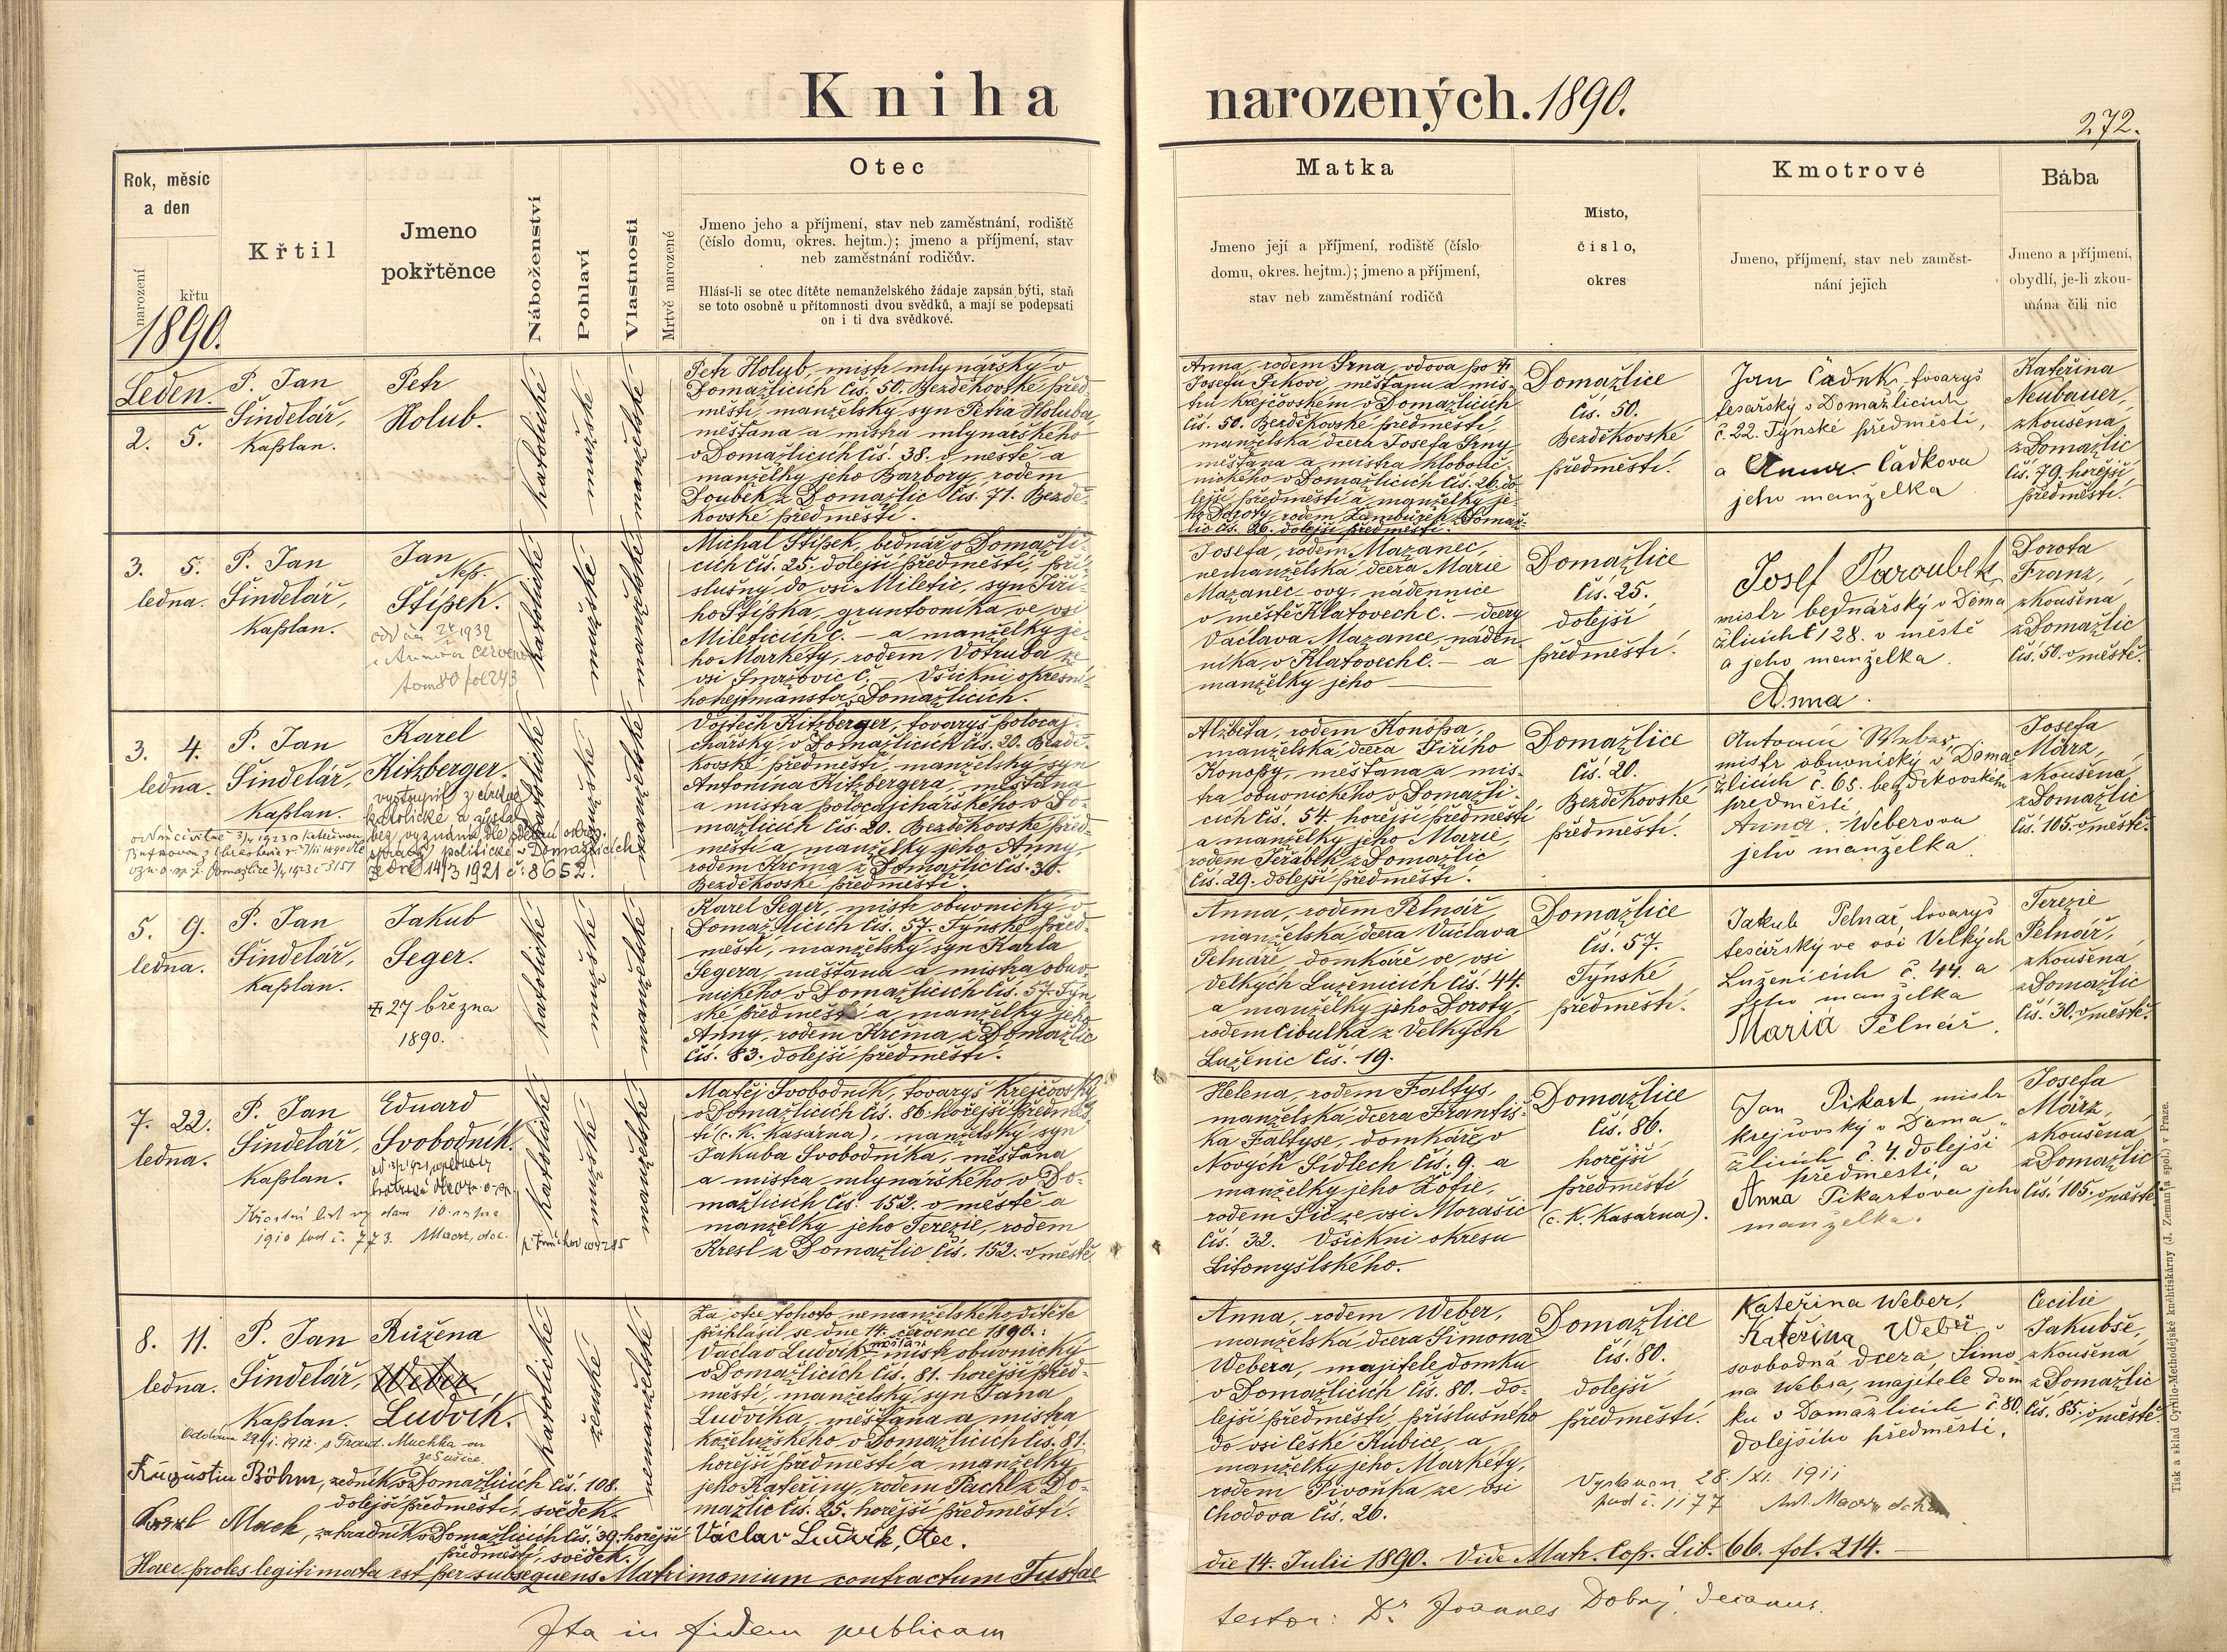 Kniha narozených. 1890.
272.
Rok, měsíc
a den
narození
křtu
1890.
Křtil
Jmeno
pokřtěnce
Náboženství
Pohlaví
Vlastnosti
Mrtvě narozené
Otec
Jmeno jeho a příjmení, stav neb zaměstnání, rodiště
(číslo domu, okres. hejtm.); jmeno a příjmení, stav
neb zaměstnání rodičův.
Hlásí-li se otec dítěte nemanželského žádaje zapsán býti, staň
se toto osobně u přítomnosti dvou svědků, a mají se podepsati
on i ti dva svědkové.
Matka
Jmeno její a příjmení, rodiště (číslo
domu, okres. hejtm.); jmeno a příjmení,
stav neb zaměstnání rodičů
Místo,
číslo,
okres
Kmotrové
Jmeno, příjmení, stav neb zaměst-
nání jejich
Bába
Jmeno a příjmení,
obydlí, je-li zkou-
mána čili nic
Leden.
2. 5.
P. Jan
Šindelář,
kaplan.
Petr
Holub.
katolické
mužské
manželské
Petr Holub, mistr mlynářský v
Domažlicích čís. 50. Bezděkovské před-
městí, manželský syn Petra Holuba,
měšťana a mistra mlynářského
v Domažlicích čís. 38. v městě a
manželky jeho Barbory, rodem
Doubek z Domažlic čís. 71. Bezdě-
kovské předměstí.
Anna, rodem Srna, vdova po †
Josefu Frkovi, měšťanu a mis-
tru krejčovském v Domažlicích
čís. 50. Bezděkovské předměstí,
manželská dcera Josefa Srny,
měšťana a mistra klobouč-
nického v Domažlicích čís. 26. do-
lejší předměstí a manželky je-
ho Doroty, rodem z Domaž-
lic čís. 26. dolejší předměstí.
Domažlice
čís. 50.
Bezděkovské
předměstí.
Jan Čadek, tovaryš
tesařský v Domažlicích
č. 22. Týnské předměstí,
a Anna Čadkova
jeho manželka
Kateřina
Neubauer,
zkoušená
z Domažlic
čís. 79. hořejší
předměstí.
3. 5.
ledna.
P. Jan
Šindelář,
kaplan.
Jan
Nep.
Štípek.
1932
katolické
mužské
manželské
Michal Štípek, bednář v Domažli-
cích čís. 25. dolejší předměstí, pří-
slušný do vsi Miletic, syn Jiří-
ho Štípka, gruntovníka ve vsi
Mileticích č. — a manželky je-
ho Markéty, rodem Votruba ze
vsi Smržovic č. — Všickni okresní-
ho hejtmanství v Domažlicích.
Josefa, rodem Mazanec,
nemanželská dcera Marie
Mazanec ovg. nádennice
v městě Klatovech č. — dcery
Václava Mazance, náden-
níka v Klatovech č. — a
manželky jeho —
Domažlice
čís. 25.
dolejší
předměstí.
Josef Paroubek
mistr bednářský v Doma
žlicích č 128. v městě
a jeho manželka
Anna.
Dorota
Franz,
zkoušená
z Domažlic
čís. 50. v městě.
3. 4.
ledna.
P. Jan
Šindelář,
kaplan.
Karel
Kitzberger.
vystoupil z církve
katolické a zůstal
bez vyznání dle podání okres.
správy politické v Domažlicích
ze dne 14/3 1921 č: 8652.
katolické
mužské
manželské
Vojtěch Kitzberger, tovaryš poločaj-
chářský, v Domažlicích čís. 20. Bezdě-
kovské předměstí, manželský syn
Antonína Kitzbergera, měšťana
a mistra poločajchářského v Do-
mažlicích čís. 20. Bezděkovské před-
městí a manželky jeho Anny,
rodem Krčma z Domažlic čís. 30.
Bezděkovské předměstí.
Alžběta, rodem Konopa,
manželská dcera Jiřího
Konopy, měšťana a mis-
tra obuvnického v Domažli-
cích čís. 54. hořejší předměstí
a manželky jeho Marie,
rodem Jeřábek z Domažlic
čís. 29. dolejší předměstí.
Domažlice
čís. 20.
Bezděkovské
předměstí.
Antonín Weber
mistr obuvnický v Doma
žlicích č. 65. bezděkovském
předměstí
Anna Weberova
jeho manželka
Josefa
März,
zkoušená
z Domažlic
čís. 105. v městě.
5. 9.
ledna.
P. Jan
Šindelář,
kaplan.
Jakub
Seger.
† 27 března
1890.
katolické
mužské
manželské
Karel Seger, mistr obuvnický v
Domažlicích čís. 57. Týnské před-
městí, manželský syn Karla
Segera, měšťana a mistra obuv-
nického v Domažlicích čís. 57. Týn-
ské předměstí a manželky jeho
Anny, rodem Krčma z Domažlic
čís. 83. dolejší předměstí.
Anna, rodem Pelnář
manželská dcera Václava
Pelnáře domkáře, ve vsi
Velkých Luženicích čís. 44.
a manželky jeho Doroty,
rodem Cibulka z Velkých
Luženic čís. 19.
Domažlice
čís. 57.
Týnské
předměstí.
Jakub Pelnař, tovaryš
tesařský ve vsi Velkých
Luženicích č. 44. a
jeho manželka
Maria Pelnář.
Terezie
Pelnář,
zkoušená
z Domažlic
čís. 30. v městě.
7. 22.
ledna.
P. Jan
Šindelář,
kaplan.
Eduard
Svobodník.
Křestní list vydán 10. srpna
1910 pod č. 773.
katolické
mužské
manželské
Matěj Svobodník, tovaryš krejčovský
v Domažlicích čís. 86. hořejší předměs-
tí (c. k. kasárna), manželský syn
Jakuba Svobodníka, měšťana
a mistra mlynářského v Do-
mažlicích čís. 152. v městě a
manželky jeho Terezie, rodem
Kresl z Domažlic čís. 152. v městě.
Helena, rodem Faltys,
manželská dcera Františ-
ka Faltyse, domkáře, v
Nových Sídlech čís. 9. a
manželky jeho Žofie,
rodem Síč ze vsi Morašic
čís. 32. Všickni okresu
Litomyšlského.
Domažlice
čís. 86.
hořejší
předměstí
(c. k. kasárna).
Jan Pikart mistr
krejčovský v Doma-
žlicích č. 4. dolejší
předměstí, a
Anna Pikartova jeho
manželka.
Josefa
März,
zkoušená
z Domažlic
čís. 105. v městě.
8. 11.
ledna.
P. Jan
Šindelář,
kaplan.
Růžena
Weber.
Ludvík.
katolické
ženské
nemanželské
Za otce tohoto nemanželského dítěte
přihlásil se dne 14. července 1890.:
Václav Ludvík, měšťan mistr obuvnický
v Domažlicích čís. 81. hořejší před-
městí, manželský syn Jana
Ludvíka, měšťana a mistra
koželužského v Domažlicích čís. 81.
hořejší předměstí a manželky
jeho Kateřiny, rodem Pachl z Do-
mažlic čís. 25. hořejší předměstí.
Václav Ludvík, Otec.
Anna, rodem Weber,
manželská dcera Šimona
Webera, majitele domku
v Domažlicích čís. 80. do-
lejší předměstí, příslušného
do vsi České Kubice a
manželky jeho Markéty,
rodem Pivoňka ze vsi
Chodova čís. 26.
Domažlice
čís. 80.
dolejší
předměstí.
Kateřina Weber,
Kateřina Weber
svobodná dcera Šimo-
na Webra, majitele dom
ku v Domažlicích č 80.
dolejšího předměstí.
Cecilie
Jakubše,
zkoušená
z Domažlic
čís. 85. v městě.
29/I. 1912. s Frant. Muchka
ze Sušice.
Augustin Böhm, zedník v Domažlicích čís. 108.
dolejší předměstí, svědek.
Karel Mack, zahradník v Domažlicích čís. 39. hořejší
předměstí, svědek.
28./XI. 1911
pod č. 1177
Haec proles legitimata est per subsequens Matrimonium contractum Tustae
die 14. Julii 1890. Vide Matr. Cop. Lib. 66. fol. 214.
Ita in fidem publicam
testor: Dr Joannes Dobrý, decanus.
Tisk a sklad Cyrillo-Methodějské kněhtiskárny (J. Zeman a spol.) v Praze.